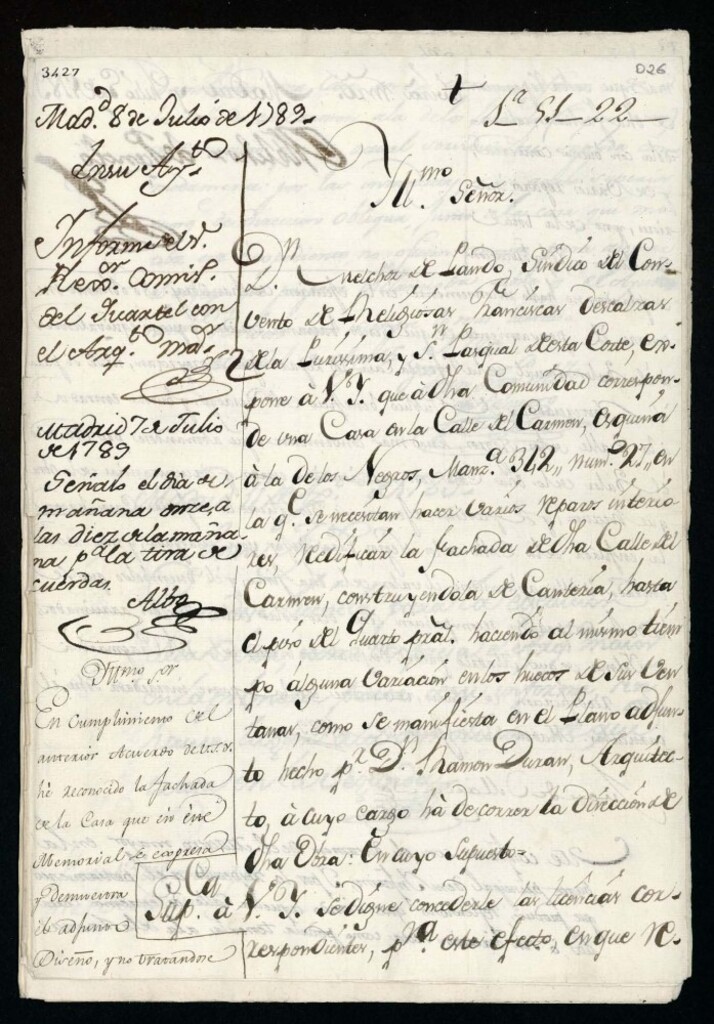 3427
D26
Mad.d 8 de Julio de 1789.
1ª 51-22
En su Ay.to
Informe el S.
Rexo.or Comis.
del Quartel con
el Arq.to m.or
Madrid 7 de Julio
de 1789
Señalo el dia de
mañana onze, a
las diez de la maña-
na p.a la tira de
cuerdas.
Alba
Yllmo S.or
En Cumplimiento del
anterior Acuerdo de V.S.Y.
hè reconocido la fachada
de la Casa que en este
Memorial se expresa
y demuestra
el adjunto
Diseño, y no tratandose
Yll.mo Señor.
D.n Melchor de Pando, Sindico del Con-
vento de Religiosas Franciscas Descalzas
de la Purissima, y S.n Pasqual de esta Corte, ex-
pone à V.Y. que à dha Comunidad correspon-
de una Casa en la Calle del Carmen, esquina
à la de los Negros, Manz.a 342,, num.o 27,, en
la q.e se necesitan hacer varios reparos interio-
res, redificar la fachada de dha Calle del
Carmen, construyendola de Canteria, hasta
el piso del Quarto pràl. haciendo al mismo tiem
po alguna variación en los huecos de sus ven-
tanas, como se manifiesta en el Plano adjun-
to hecho p.r D.n Ramon Duran, Arquitec-
to, à cuyo cargo hà de correr la dirección de
dha Obra: En cuyo supuesto-
Sup.ca à V.Y. se digne concederle las licencias cor-
respondientes, p.a este efecto, en que re-